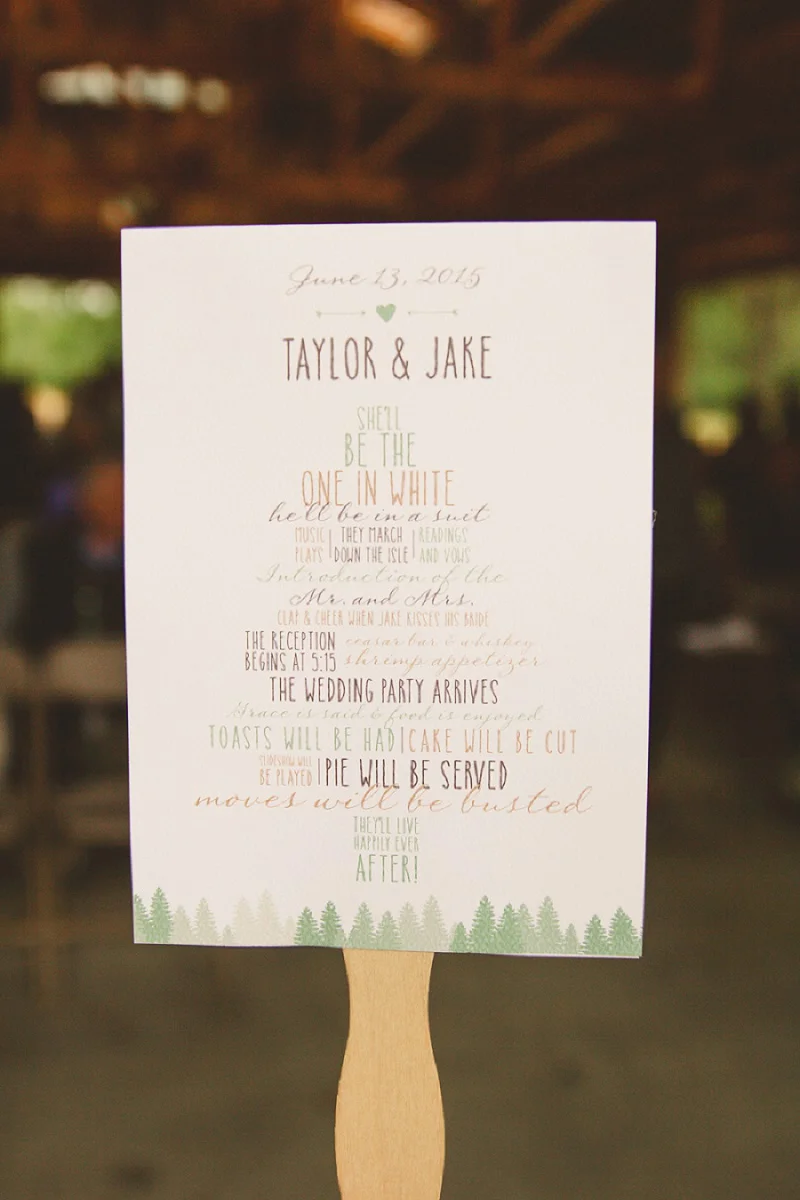 June 13, 2015
TAYLOR & JAKE
SHE'LL
BE THE
ONE IN WHITE
he'll be in a suit
MUSIC PLAYS | THEY MARCH DOWN THE ISLE | READINGS AND VOWS
Introduction of the
Mr. and Mrs.
CLAP & CHEER WHEN JAKE KISSES HIS BRIDE
THE RECEPTION BEGINS AT 5:15
ceasar bar & whiskey
shrimp appetizer
THE WEDDING PARTY ARRIVES
Grace is said & food is enjoyed
TOASTS WILL BE HAD | CAKE WILL BE CUT
SLIDESHOW WILL BE PLAYED | PIE WILL BE SERVED
moves will be busted
THEY'LL LOVE
HAPPILY EVER
AFTER!